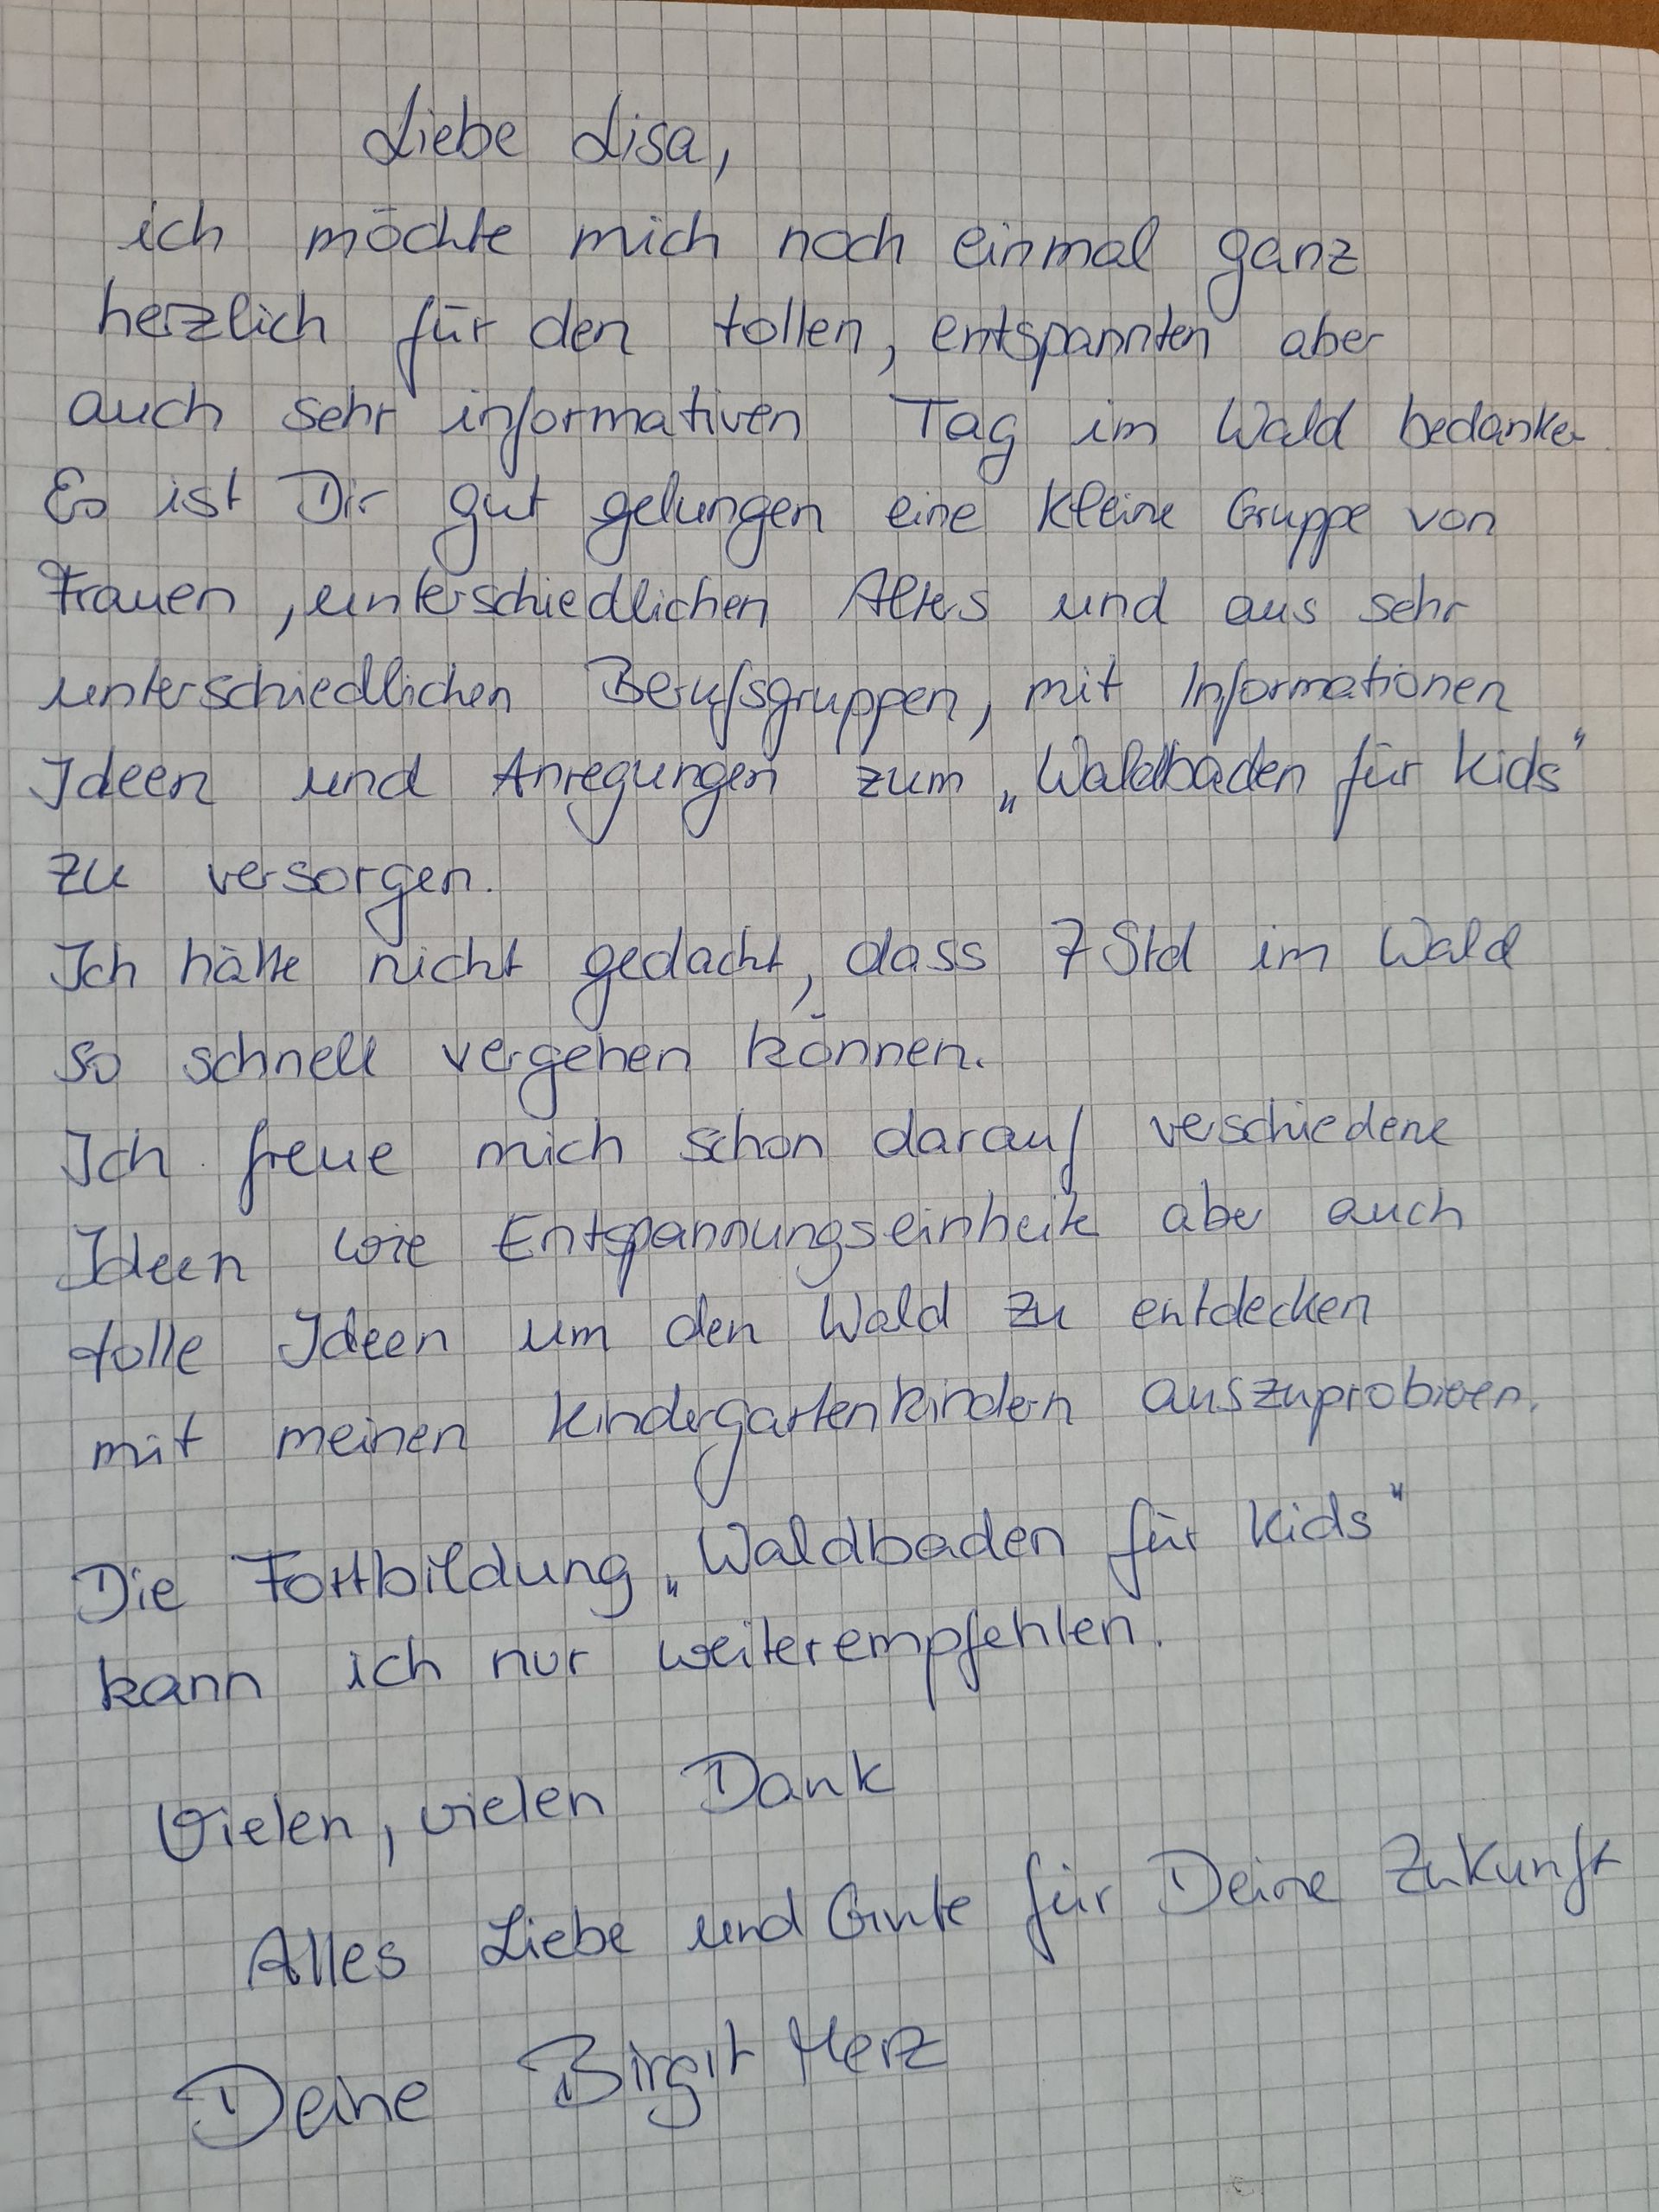 Liebe Lisa,
ich möchte mich noch einmal ganz
herzlich für den tollen, entspannten aber
auch sehr informativen Tag im Wald bedanken.
Es ist Dir gut gelungen eine kleine Gruppe von
Frauen, unterschiedlichen Alters und aus sehr
unterschiedlichen Berufsgruppen, mit Informationen
Ideen und Anregungen zum „Waldbaden für Kids"
zu versorgen.
Ich hätte nicht gedacht, dass 7 Std im Wald
so schnell vergehen können.
Ich freue mich schon darauf verschiedene
Ideen wie Entspannungseinheite aber auch
tolle Ideen um den Wald zu entdecken
mit meinen Kindergartenkindern auszuprobieren.
Die Fortbildung „Waldbaden für Kids"
kann ich nur weiterempfehlen.
Vielen, vielen Dank
Alles Liebe und Gute für Deine Zukunft
Deine Birgit Merz